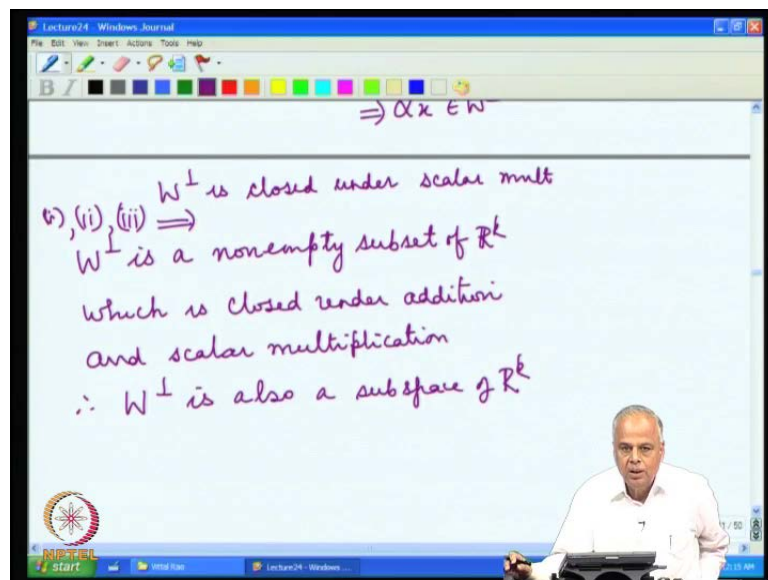 Lecture24 - Windows Journal
File Edit View Insert Actions Tools Help
B I
⇒ αx ∈ W
W⊥ is closed under scalar mult
(i), (ii), (iii) ⇒
W⊥ is a nonempty subset of ℝᵏ
which is closed under addition
and scalar multiplication
∴ W⊥ is also a subspace of ℝᵏ
NPTEL
start
Vittal Rao
Lecture24 - Windows ...